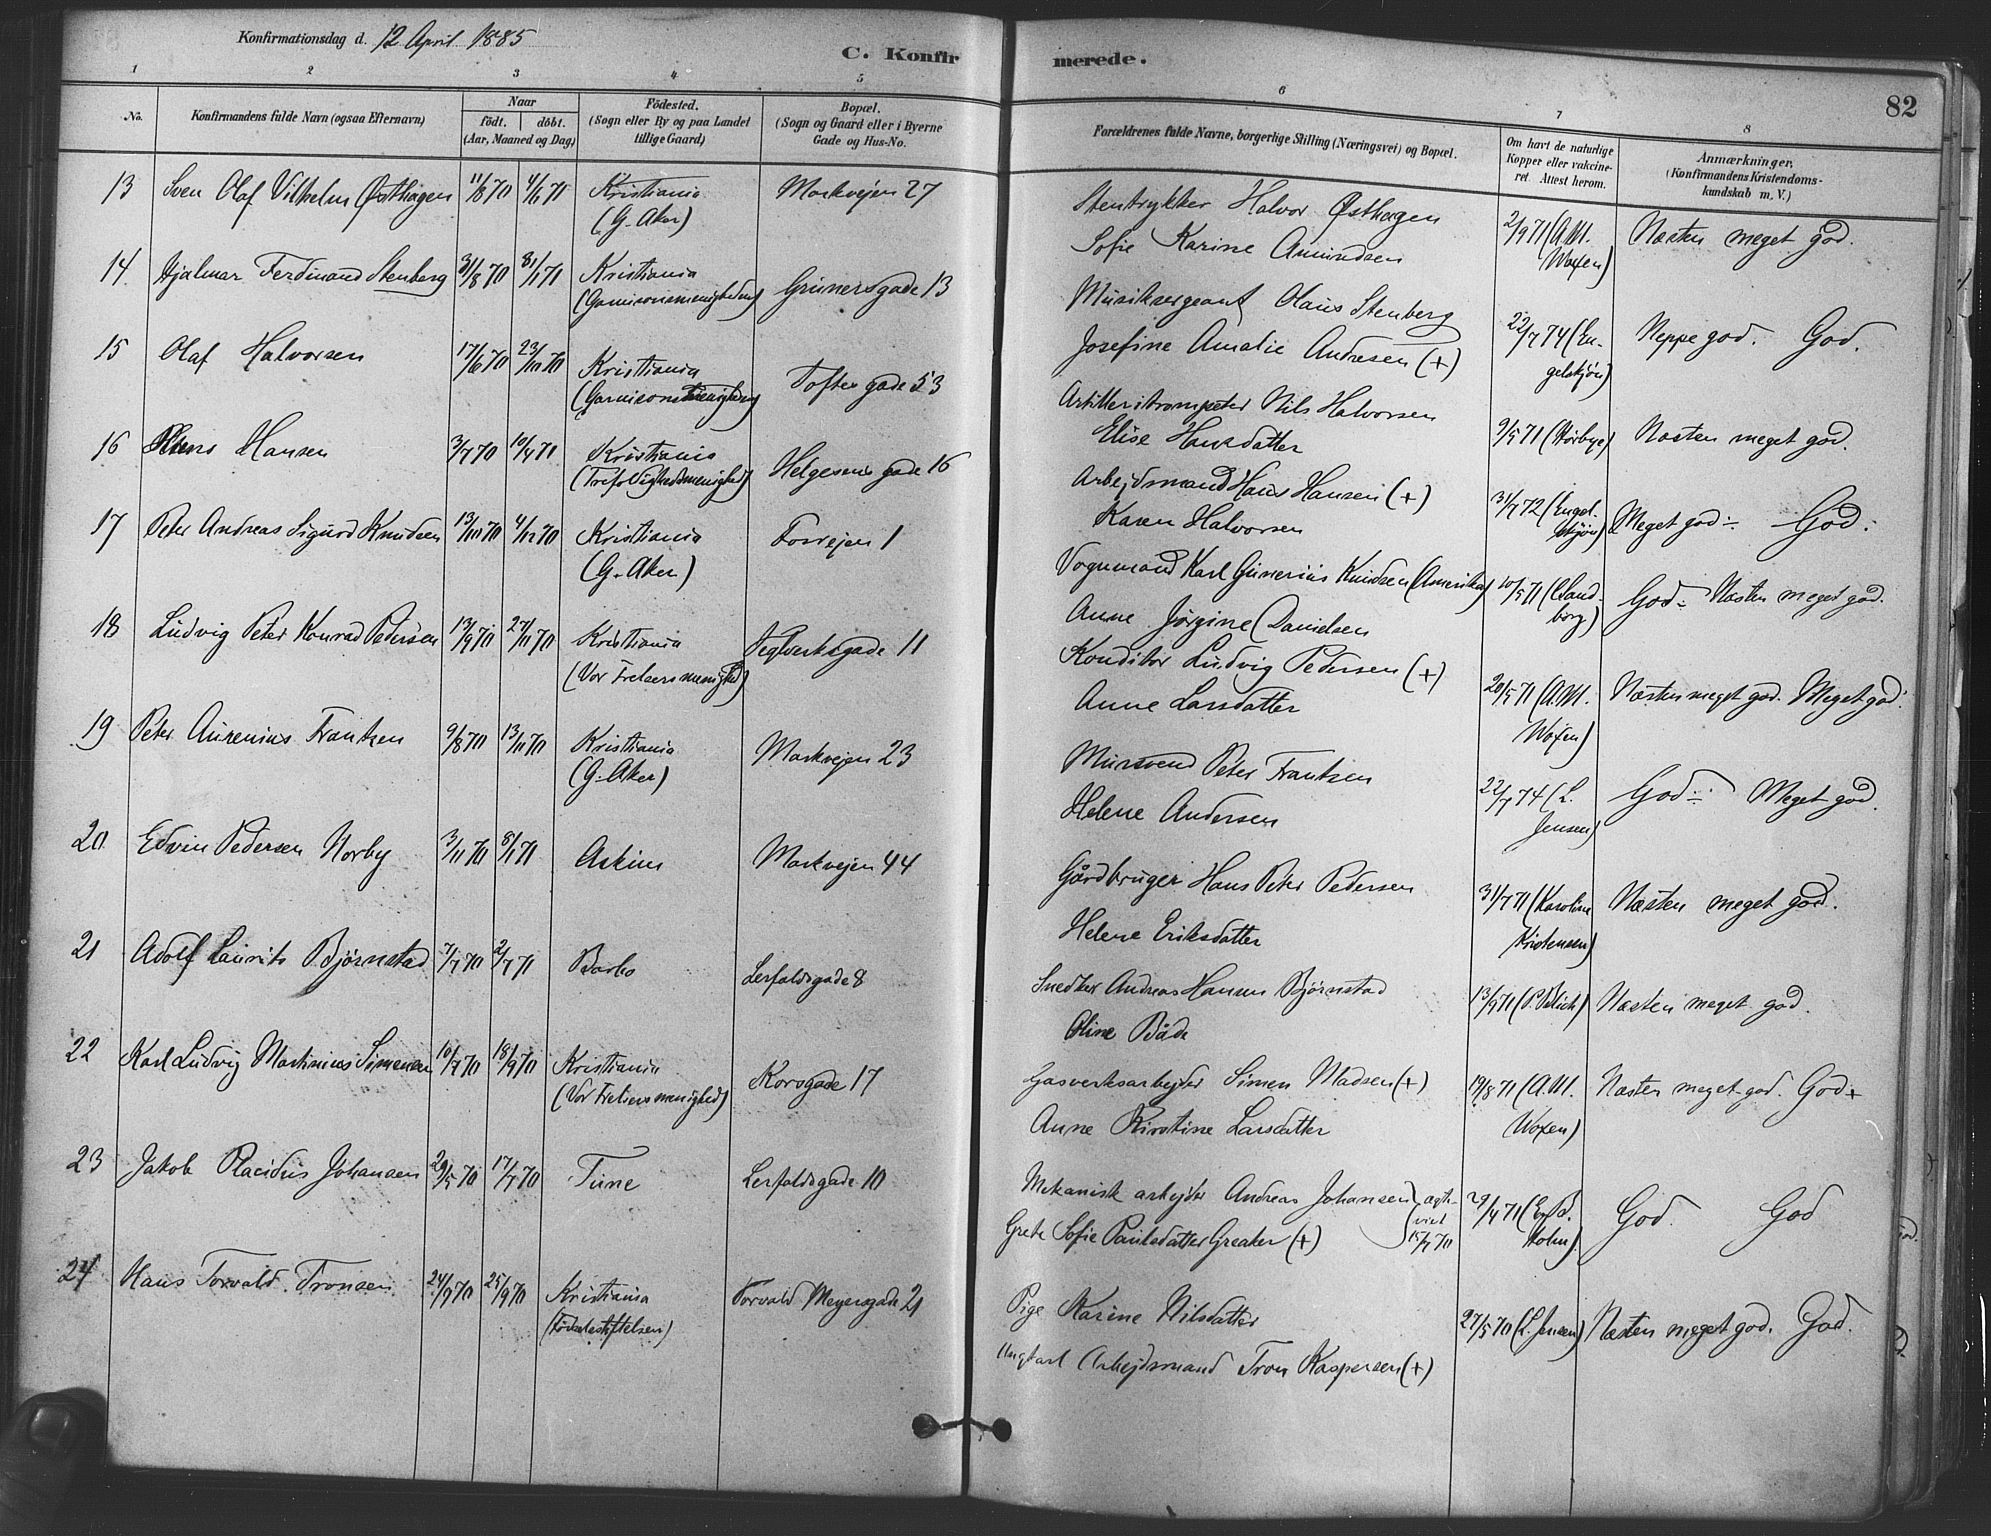 Konfirmationsdag d. 12 April 1885
C. Konfirmerede.
82
1 2 3 4 5 6 7 8
No.
Konfirmandens fulde Navn (ogsaa Efternavn)
Naar
födt. döbt.
(Aar, Maaned og Dag)
Födested.
(Sogn eller By og paa Landet
tillige Gaard)
Bopæl.
(Sogn og Gaard eller i Byerne
Gade og Hus-No.
Forældrenes fulde Navne, borgerlige Stilling (Næringsvei) og Bopæl.
Om havt de naturlige
Kopper eller vakcine-
ret. Attest herom.
Anmærkninger.
(Konfirmandens Kristendoms-
kundskab m. V.)
13 Sven Olaf Vilhelm Østhagen 11/8 70 4/1 71 Kristiania Markvejen 27
(G. Aker)
Stentrykker Halvor Østhagen 2/9 71 (A.M. Næsten meget god.
Sofie Karine Amundsen Woxen)
14 Hjalmar Ferdinand Stenberg 31/8 70 81/1 71 Kristiania Grünersgade 13
(Garnisonsmenigheden)
Musiksergeant Olaus Stenberg 22/7 74 (En- Neppe god. God.
Josefine Amalie Andresen (+) gelskjøn)
15 Olaf Halvorsen 17/6 70 23/10 70 Kristiania Toftes gade 53
(Garnisonsmenigheden)
Artilleritrompeter Nils Halvorsen 9/5 71 (Storbye) Næsten meget god.
Elise Hansdatter
16 Hans Hansen 3/7 70 10/4 71 Kristiania Helgesens gade 16
(Trefoldighedsmenighed)
Arbejdsmand Hans Hansen (+) 31/7 72 (Engel- Meget god÷ God.
Karen Halvorsen skjøn)
17 Peter Andreas Sigurd Knudsen 13/10 70 4/12 70 Kristiania Fosvejen 1
(G. Aker)
Vognmand Karl Gunerius Knudsen (Amerika) 10/5 71 (Sand- God÷ Næsten meget god.
Anne Jørgine Danielsen borg)
18 Ludvig Peter Konrad Pedersen 13/9 70 27/11 70 Kristiania Teglverksgade 11
(Vor Frelsers menighed)
Konditor Ludvig Pedersen (+) 20/5 71 (A.M. Næsten meget god. Meget god.
Anne Larsdatter Woxen)
19 Peter Aurenius Frantzen 9/8 70 13/11 70 Kristiania Markvejen 23
(G. Aker)
Mursvend Peter Frantzen 22/7 74 (L. God÷ Meget god.
Helene Andersen Jensen)
20 Edvin Pedersen Norby 3/11 70 8/1 71 Askim Markvejen 44
Gårdbruger Hans Peter Pedersen 31/7 71 (Karoline Næsten meget god.
Helene Eriksdatter Kristensen)
21 Adolf Laurits Bjørnstad 7/7 70 2/7 71 Barbo Lerfaldsgade 8
Snedker Andreas Hansen Bjørnstad 13/9 71 Næsten meget god.
Oline Både
22 Karl Ludvig Martinius Simensen 10/7 70 18/9 70 Kristiania Korsgade 17
(Vor Frelsers menighed)
Gasverksarbejder Simen Madsen (+) 19/8 71 (A.M. Næsten meget god. God+
Anne Kirstine Larsdatter Woxen)
23 Jakob Placidus Johansen 29/5 70 17/7 70 Tune Lerfaldsgade 10
Mekanisk arbejder Andreas Johansen ægte- 29/4 71 God. God
Grete Sofie Paulsdatter Greaker (+) viet 15/7 70 Holm)
24 Hans Torvald Tronsen 24/9 70 25/9 70 Kristiania Torvald Meyersgade 21
(Fødselsstiftelsen)
Pige Karine Nilsdatter 27/5 70 (L. Jensen) Næsten meget god. God.
Ungkarl Arbejdsmand Tron Kaspersen (+)